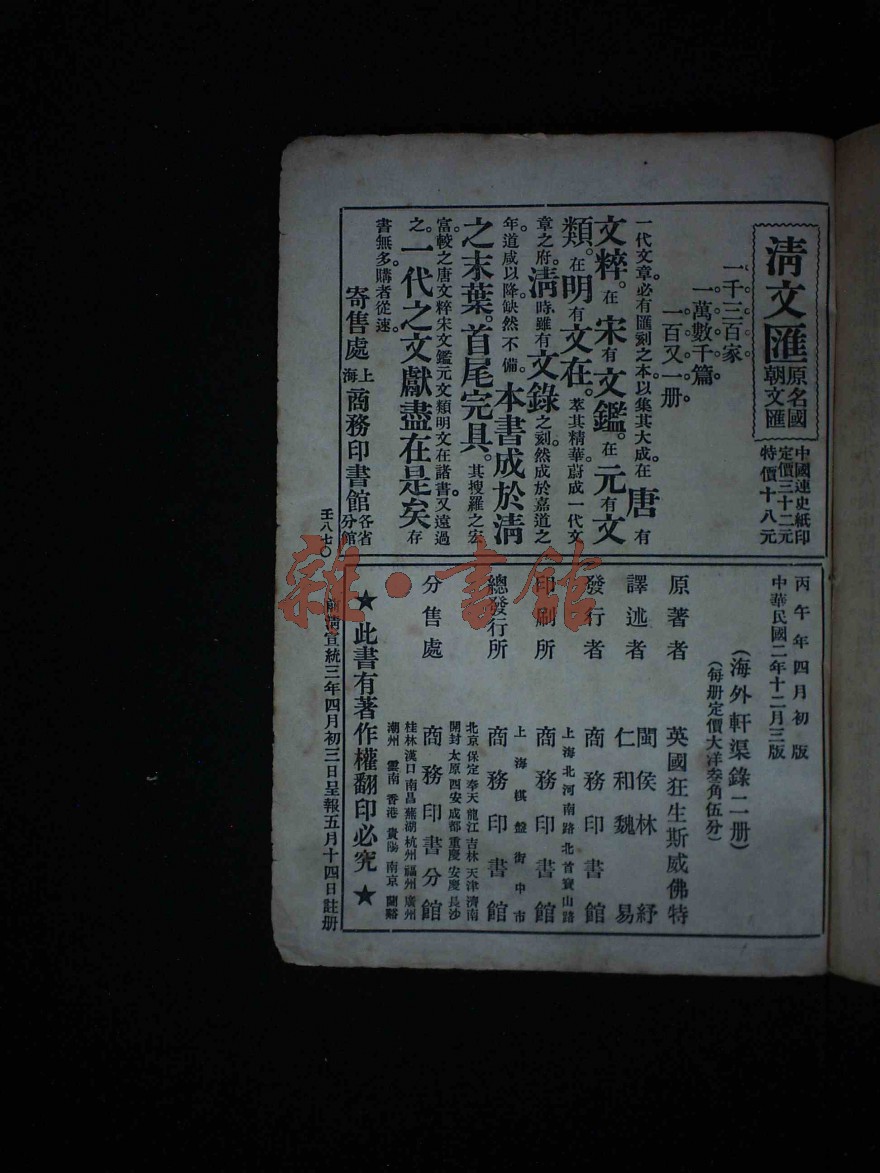 清文匯
原名國
朝文匯
中國連史紙印
定價三十二元
特價十八元
一千三百家
一萬數千篇
一百又一册
一代文章。必有匯刻之本。以集其大成。在唐有
文粹。在宋有文鑑。在元有文
類。在明有文在。萃其精華。蔚成一代文
章之府。清時雖有文錄之刻。然成於嘉道之
年。道咸以降。缺然不備。本書成於清
之末葉。首尾完具。其搜羅之宏
富。較之唐文粹宋文鑑元文類明文在諸書。又遠過
之。一代之文獻盡在是矣。存
書無多。購者從速。
寄售處
上海
商務印書館
各省
分館
壬八七〇
丙午年四月初版
中華民國二年十二月三版
（海外軒渠錄二册）
（每册定價大洋叁角伍分）
原著者 英國狂生斯威佛特
譯述者 閩侯林紓
仁和魏易
發行者 商務印書館
上海北河南路北首寶山路
印刷所 商務印書館
上海棋盤街中市
總發行所 商務印書館
北京保定奉天龍江吉林天津濟南
開封太原西安成都重慶安慶長沙
分售處 商務印書分館
桂林漢口南昌蕪湖杭州福州廣州
潮州 雲南 香港 貴陽 南京 蘭谿
★此書有著作權翻印必究★
前清宣統三年四月初三日呈報五月十四日註册
雜·書館